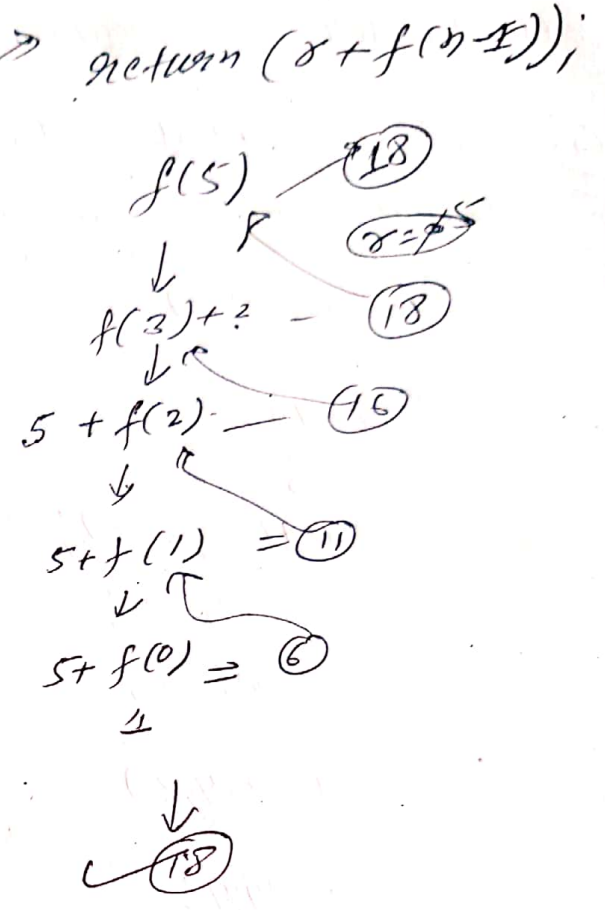 → return (r + f(n-1));
f(5) → 18
r = 5
↓
f(3) + 2 - 18
↓
5 + f(2) - 16
↓
5 + f(1) = 11
↓
5 + f(0) = 6
1
↓
18